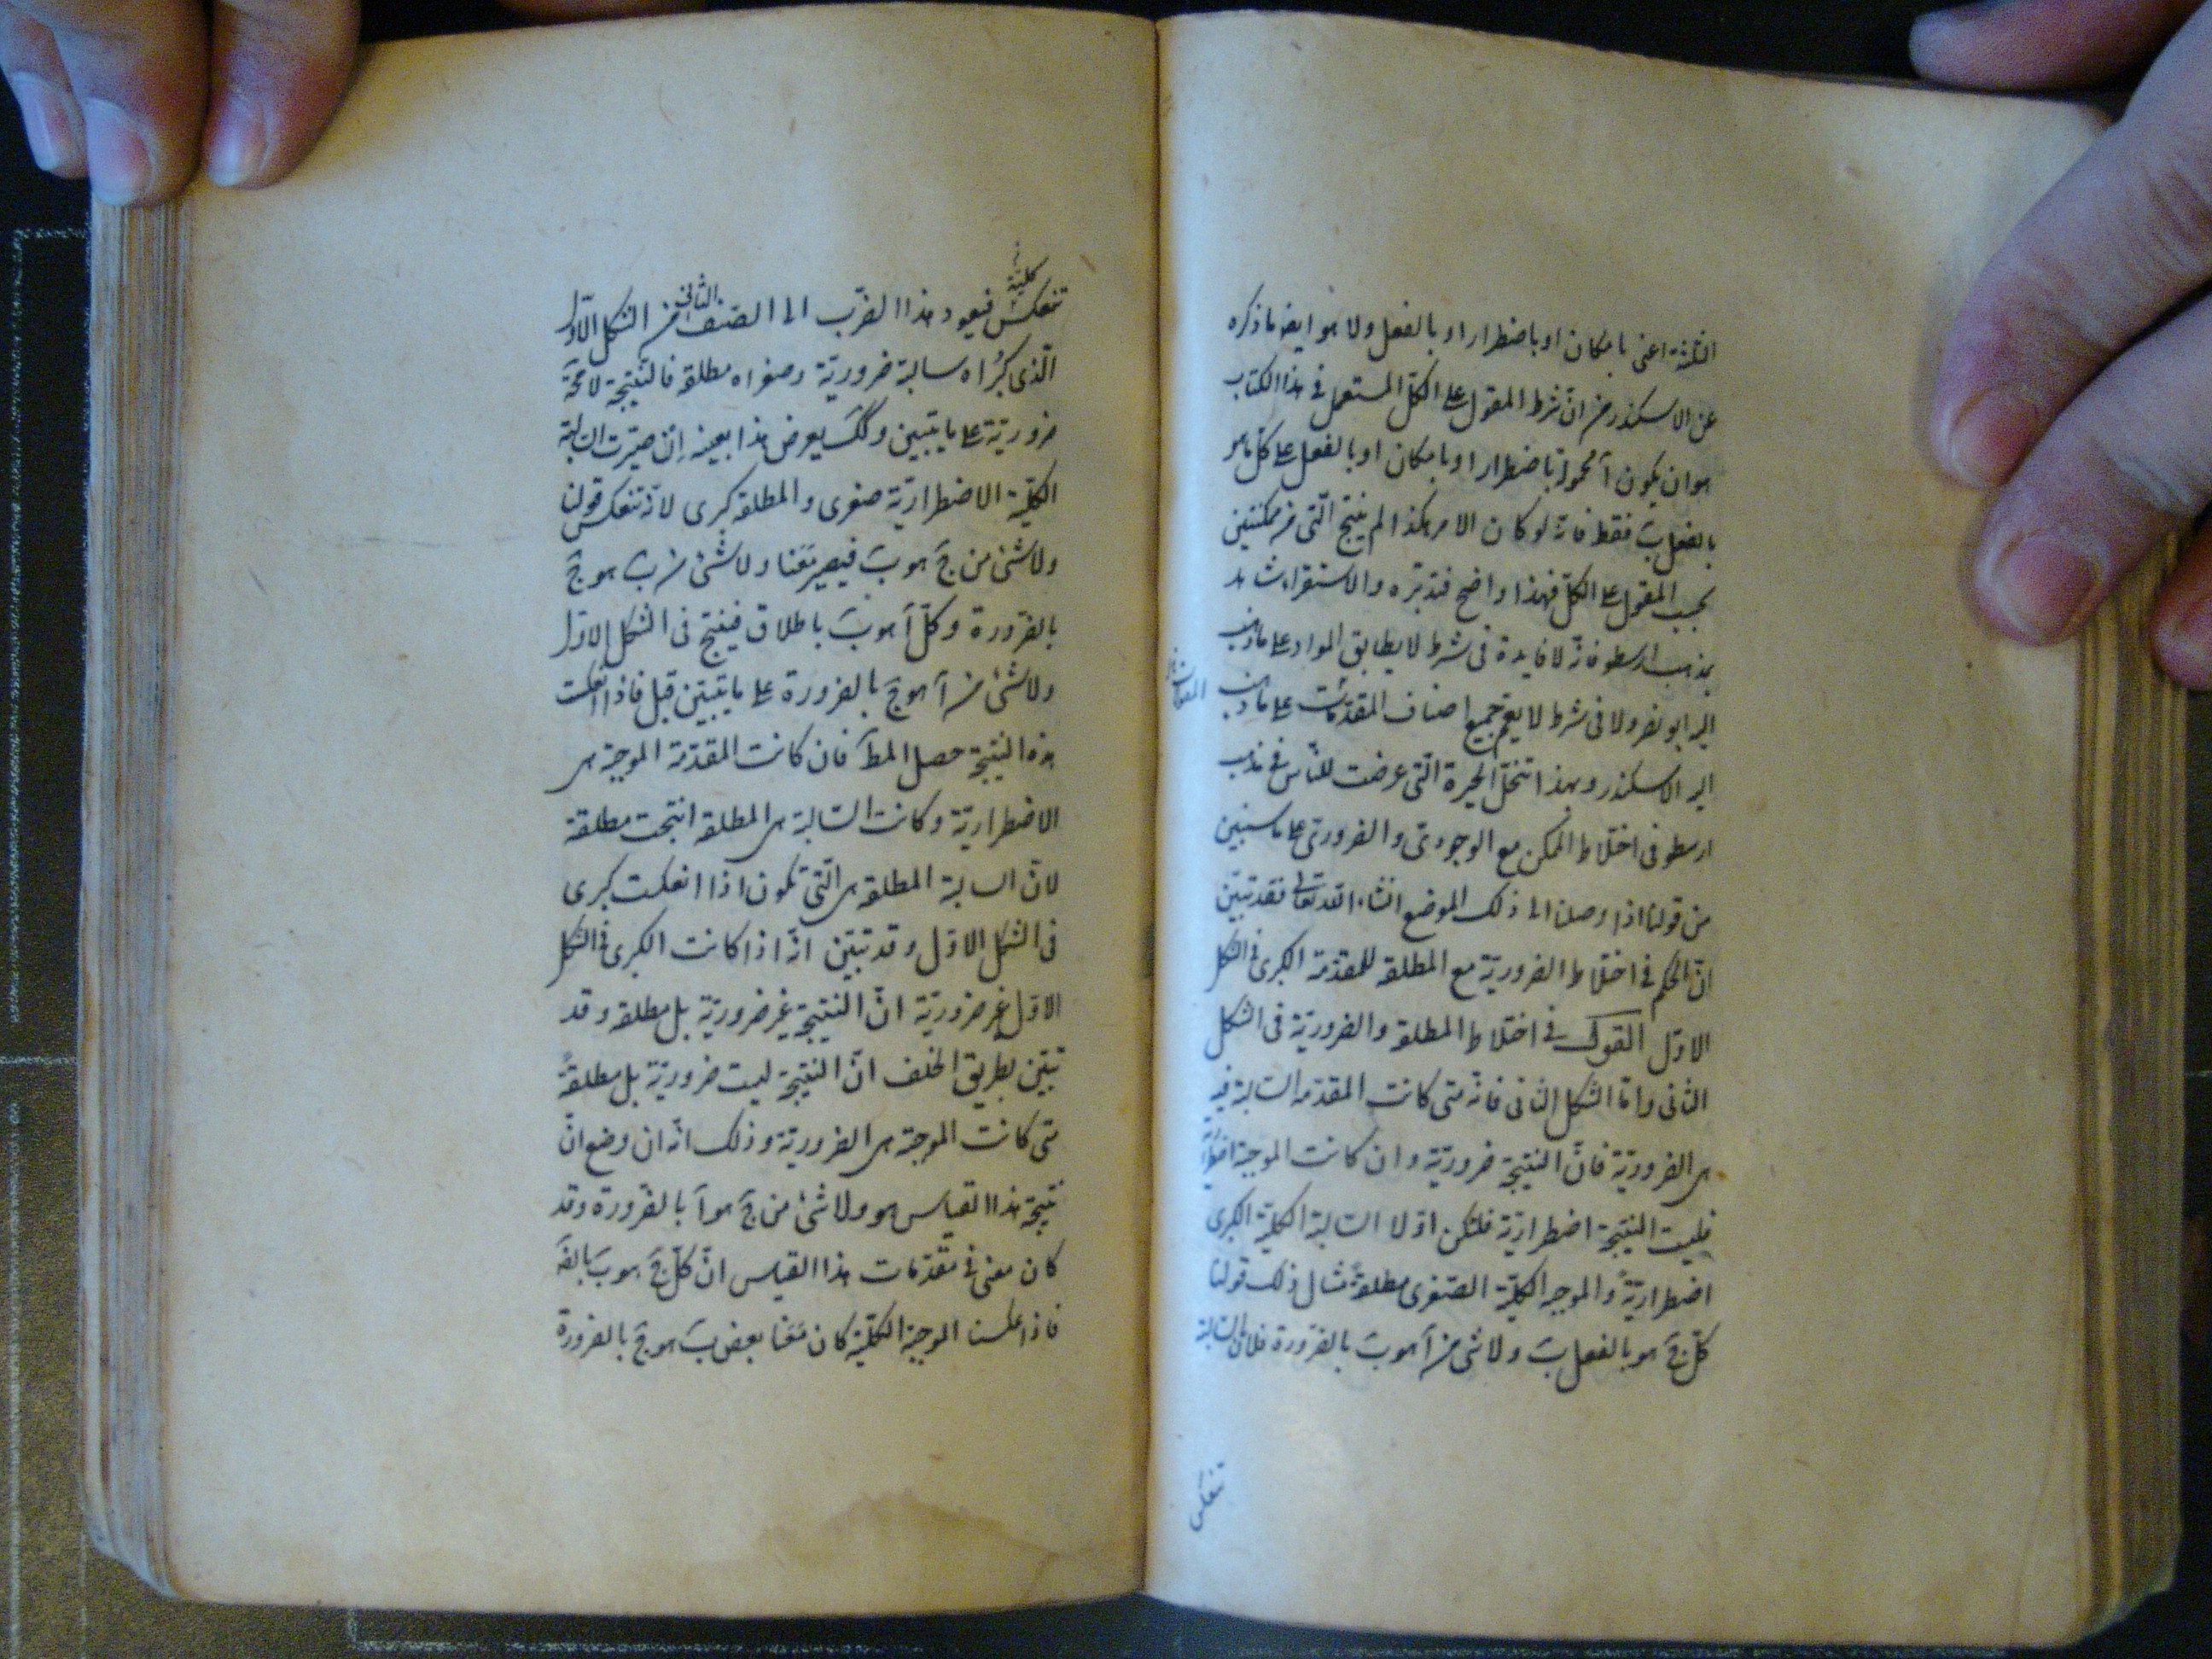 الثلثة اعنى بامكان او باضطرار او بالفعل ولا هو ايضا ما ذكره
عن الاسكندر من انّ شرط المقول على الكلّ المستعمل فى هذا الكتاب
هو ان يكون آ محمولة باضطرار او بامكان او بالفعل على كلّ ما هو
بالفعل بَ فقط فانه لو كان الامر هكذا لم ينتج الّتى من ممكنتين
بحسب المقول على الكلّ فهذا واضح فتدبّره والاستقراء شاهد
بمذهب ارسطو فانّه لا فايدة فى شرط لا يطابق المواد على ما ذهب
اليه ابو نصر ولا فى شرط لا يعم جميع اصناف المقدّمات على ما ذهب
اليه الاسكندر وبهذا تنحلّ الحيرة الّتى عرضت للنّاس فى مذهب
ارسطو فى اختلاط الممكن مع الوجودىّ والضرورىّ على ما سنبين
من قولنا اذا وصلنا الى ذلك الموضع انشاء الله تعالى فقد تبيّن
انّ الحكم فى اختلاط الضروريّة مع المطلقة للمقدّمة الكبرى فى الشكل
الاوّل القول فى اختلاط المطلقة والضروريّة فى الشكل
الثانى وامّا الشكل الثانى فانّه متى كانت المقدّمة السّالبة فيه
هى الضروريّة فانّ النتيجة ضروريّة وان كانت الموجبة اضطراريّة
فليست النتيجة اضطراريّة فلتكن اوّلا السّالبة الكليّة الكبرى
اضطراريّةً والموجبة الكليّة الصّغرى مطلقةً مثال ذلك قولنا
كلّ جَ هو بالفعل بَ ولا شى من آ هو بَ بالضّرورة فلانّ السّالبة
تنعكس
كليّة
تنعكس فيعود هذا الضّرب الى الصّنف الثانى من الشكل الاوّل
الّذى كبراه سالبة ضروريّة وصغراه مطلقة فالنّتيجة لا محة
ضروريّة على ما يتبيّن وكك يعرض هذا بعينه إن صيّرت السّالبة
الكليّة الاضطراريّة صغرى والمطلقة كبرى لانّه تنعكس قولنا
ولا شئ من جَ هو بَ فيصير مَعَنا ولا شئ من بَ هو جَ
بالضّرورة وكلّ آ هو بَ باطلاق فينتج فى الشكل الاوّل
ولا شئ من آ هو جَ بالضرورة على ما تبيّن قبل فاذا انعكست
هذه النتيجة حصل المط فان كانت المقدّمة الموجبة هى
الاضطراريّة وكانت السّالبة هى المطلقة انتجت مطلقة
لانّ السالبة المطلقة هى الّتى تكون اذا انعكست كبرى
فى الشكل الاوّل وقد تبيّن انّه اذا كانت الكبرى فى الشكل
الاوّل غير ضروريّة انّ النتيجة غير ضروريّة بل مطلقة وقد
تبيّن بطريق الخلف انّ النتيجة ليست ضروريّة بل مطلقةً
متى كانت الموجبة هى الضروريّة وذلك انّه ان وضع انّ
نتيجة هذا القياس هو ولا شئ من جَ هو آ بالضّرورة وقد
كان معنى فى مقدّمات هذا القياس انّ كلّ جَ هو بَ بالضَ
فاذا عكسنا الموجبة الكليّة كان مَعَنا بعض بَ هو جَ بالضرورة